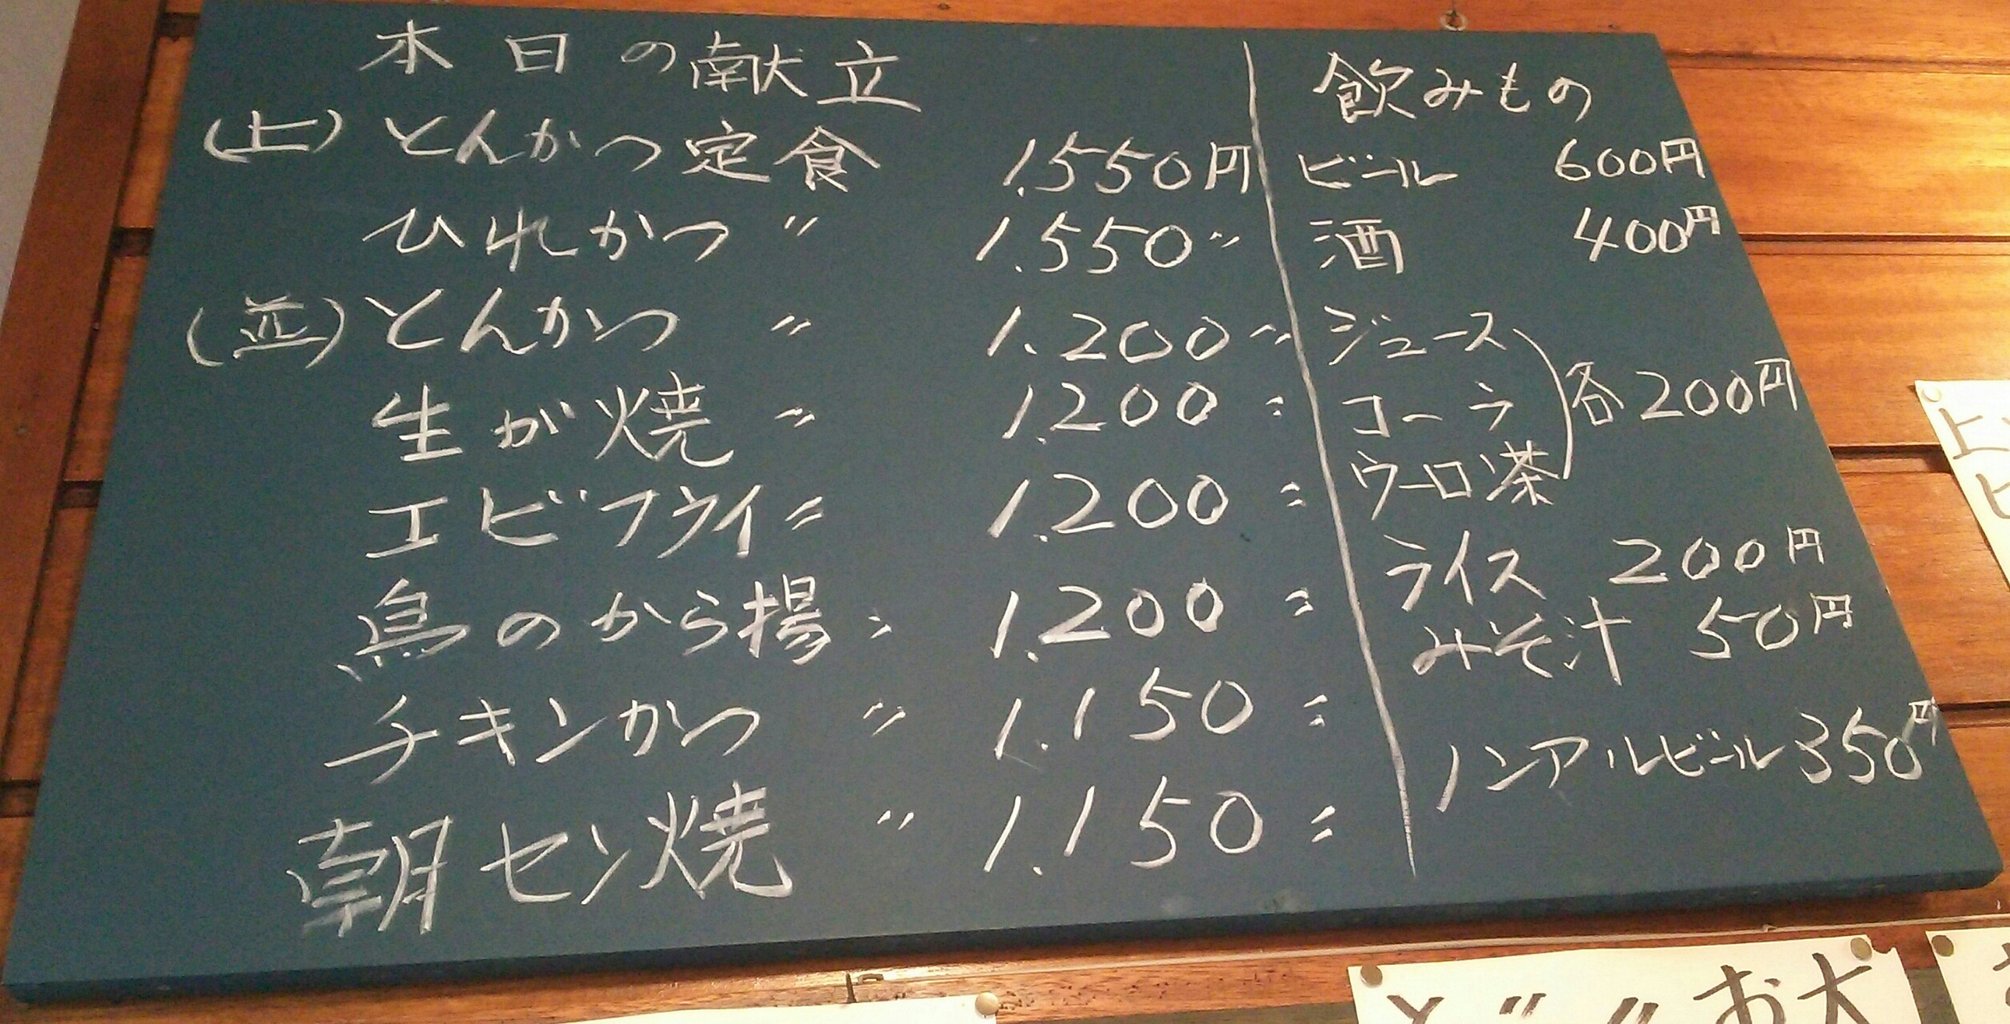 本日の献立
(上) とんかつ定食 1.550円
ひれかつ 〃 1.550〃
(並) とんかつ 〃 1.200〃
生が焼 〃 1.200〃
エビフライ〃 1.200〃
鳥のから揚〃 1.200〃
チキンかつ 〃 1.150〃
朝セン焼 〃 1.150〃
飲みもの
ビール 600円
酒 400円
ジュース
コーラ 各200円
ウーロン茶
ライス 200円
みそ汁 50円
ノンアルビール 350円
上
ビ
お大